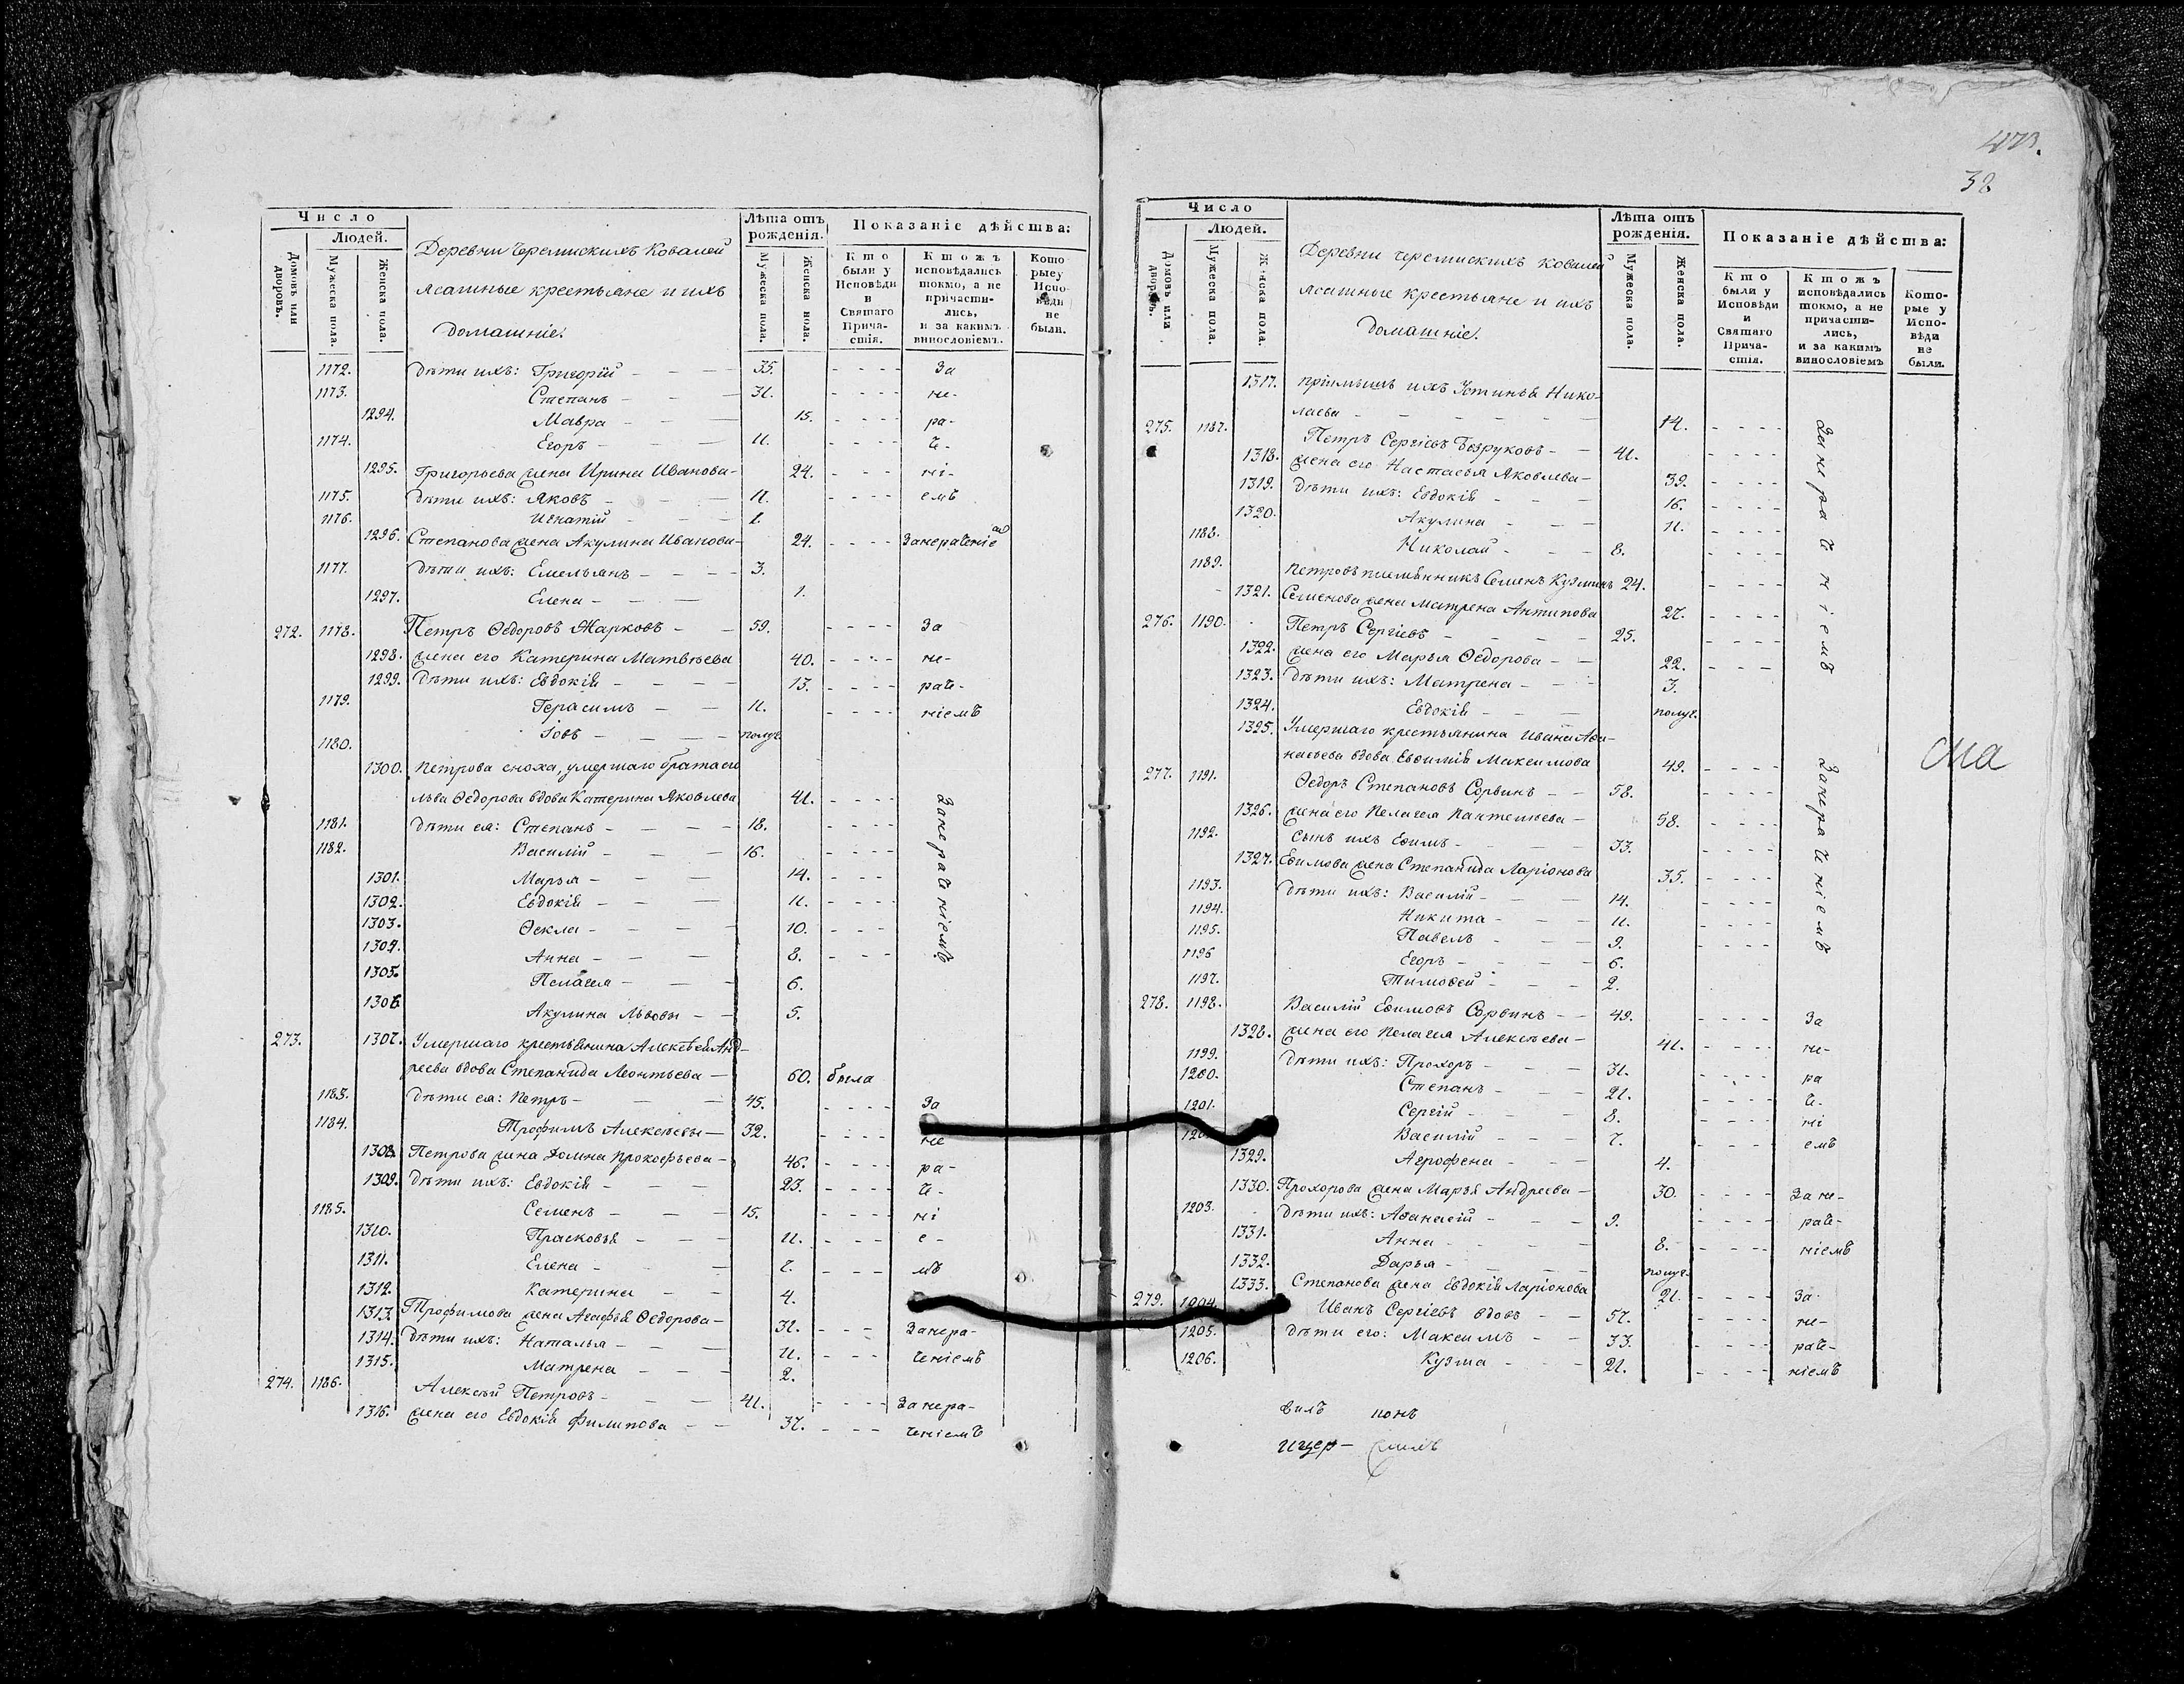 473.
32
Число
Людей.
Домовъ или дворовъ.
Мужеска пола.
Женска пола.
Деревни Черемискихъ Ковалей
ясашные крестьяне и ихъ
домашніе.
Лѣта отъ рожденія.
Мужеска пола.
Женска пола.
Показаніе дѣйства:
Кто были у Исповѣди и Святаго Прича-стія.
Ктожъ исповѣдались токмо, а не причасти-лись, и за какимъ винословіемъ.
Кото рыеу Испо-вѣди не были.
1172. дѣти ихъ: Григорій 35. За
1173. Степанъ 31. не-
1294. Мавра 15. ра-
1174. Егоръ 11. че-
1295. Григорьева жена Ирина Иванова 24. ні-
1175. дѣти ихъ: Яковъ 11. емъ
1176. Игнатій 1.
1296. Степанова жена Акулина Иванова 24. Занераченіе
1177. дѣти ихъ: Емельянъ 3.
1297. Елена 1.
272. 1178. Петръ Ѳедоровъ Жарковъ 59. За
1298. жена его Катерина Матвѣева 40. не-
1299. дѣти ихъ: Евдокія 13. раче-
1179. Герасимъ 11. ніемъ
1180. Іовъ полуг.
1300. Петрова сноха, умершаго брата его
Льва Ѳедорова вдова Катерина Яковлева 41. Занераченіемъ
1181. дѣти ея: Степанъ 18.
1182. Василій 16.
1301. Марья 14.
1302. Евдокія 11.
1303. Ѳекла 10.
1304. Анна 8.
1305. Пелагея 6.
1306. Акулина Львовы 5.
273. 1307. Умершаго крестьянина Алексѣя Анд-
реева вдова Степанида Леонтьева 60. была
1183. дѣти ея: Петръ 45. За
1184. Трофимъ Алексѣевы 32. не
1308. Петрова жена Домна Прокофьева 46. ра-
1309. дѣти ихъ: Евдокія 23. че-
1185. Семенъ 15. ні
1310. Прасковья 11. е-
1311. Елена 7. мъ
1312. Катерина 4.
1313. Трофимова жена Агафья Ѳедорова 31. Занера-
1314. дѣти ихъ: Наталья 11. ченіемъ
1315. Матрена 2.
274. 1186. Алексѣй Петровъ 41. Занера-
1316. жена его Евдокія Филипова 37. ченіемъ
Число
Людей.
Домовъ или дворовъ.
Мужеска пола.
Женска пола.
Деревни черемискихъ ковалей
ясашные крестьяне и ихъ
домашніе.
Лѣта отъ рожденія.
Мужеска пола.
Женска пола.
Показаніе дѣйства:
Кто были у Исповѣди и Святаго Прича-стія.
Ктожъ исповѣдались токмо, а не причасти-лись, и за какимъ винословіемъ
Кото-рые у Испо-вѣди не были.
1317. пріимышъ ихъ Устинья Нико-
лаева 14. Занераченіемъ
275. 1187. Петръ Сергіевъ Безруковъ 41.
1318. жена его Настасья Яковлева 39.
1319. дѣти ихъ: Евдокія 16.
1320. Акулина 11.
1188. Николай 8.
1189. Петровъ племянникъ Семенъ Кузминъ 24.
1321. Семенова жена Матрена Антипова 27.
276. 1190. Петръ Сергіевъ 25.
1322. жена его Марья Ѳедорова 22.
1323. дѣти ихъ: Матрена 3.
1324. Евдокія полуг.
1325. Умершаго крестьянина Ивана Аѳа-
насьева вдова Евѳимія Максимова 49. Занераченіемъ
277. 1191. Ѳедоръ Степановъ Сорвинъ 58.
1326. жена его Пелагея Пантелѣева 58.
1192. сынъ ихъ Еѳимъ 33.
1327. Еѳимова жена Степанида Ларіонова 35.
1193. дѣти ихъ: Василій 14.
1194. Никита 11.
1195. Павелъ 9.
1196 Егоръ 6.
1197. Тимоѳей 2.
278. 1198. Василій Еѳимовъ Сорвинъ 49. За
1328. жена его Пелагея Алексѣева 41. не-
1199. дѣти ихъ: Прохоръ 31. ра
1200. Степанъ 21. че-
1201. Сергій 8. ні
Василій 7. емъ
1329. Агрофена 4.
1330. Прохорова жена Марья Андреева 30. За не-
1203. дѣти ихъ: Аѳанасій 9. раче-
1331. Анна 8. ніемъ
1332. Дарья полуг.
1333. Степанова жена Евдокія Ларіонова 21. За
279. 1204. Иванъ Сергіевъ вдовъ 57. не-
1205. дѣти его: Максимъ 33. раче-
1206. Кузма 21. ніемъ
ма